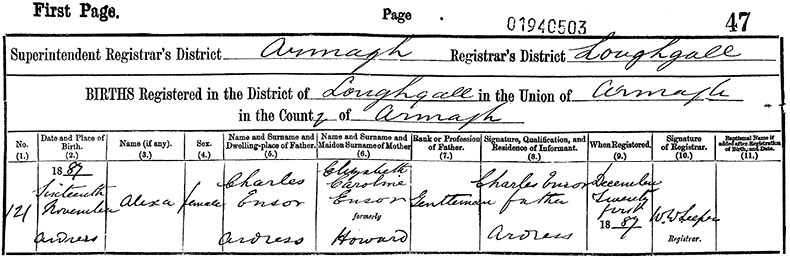 First Page. Page 01940503 47
Superintendent Registrar's District Armagh Registrar's District Loughgall
BIRTHS Registered in the District of Loughgall in the Union of Armagh
in the County of Armagh
No. (1.) Date and Place of Birth. (2.) Name (if any). (3.) Sex. (4.) Name and Surname and Dwelling-place of Father. (5.) Name and Surname and Maiden Surname of Mother (6.) Rank or Profession of Father. (7.) Signature, Qualification, and Residence of Informant. (8.) When Registered. (9.) Signature of Registrar. (10.) Baptismal Name if added after Registration of Birth, and Date. (11.)
121 1887 Sixteenth November Ardress Alexa female Charles Ensor Ardress Elizabeth Caroline Ensor formerly Howard Gentleman Charles Ensor father Ardress December Twenty first 1887 W. W. Leeper Registrar.